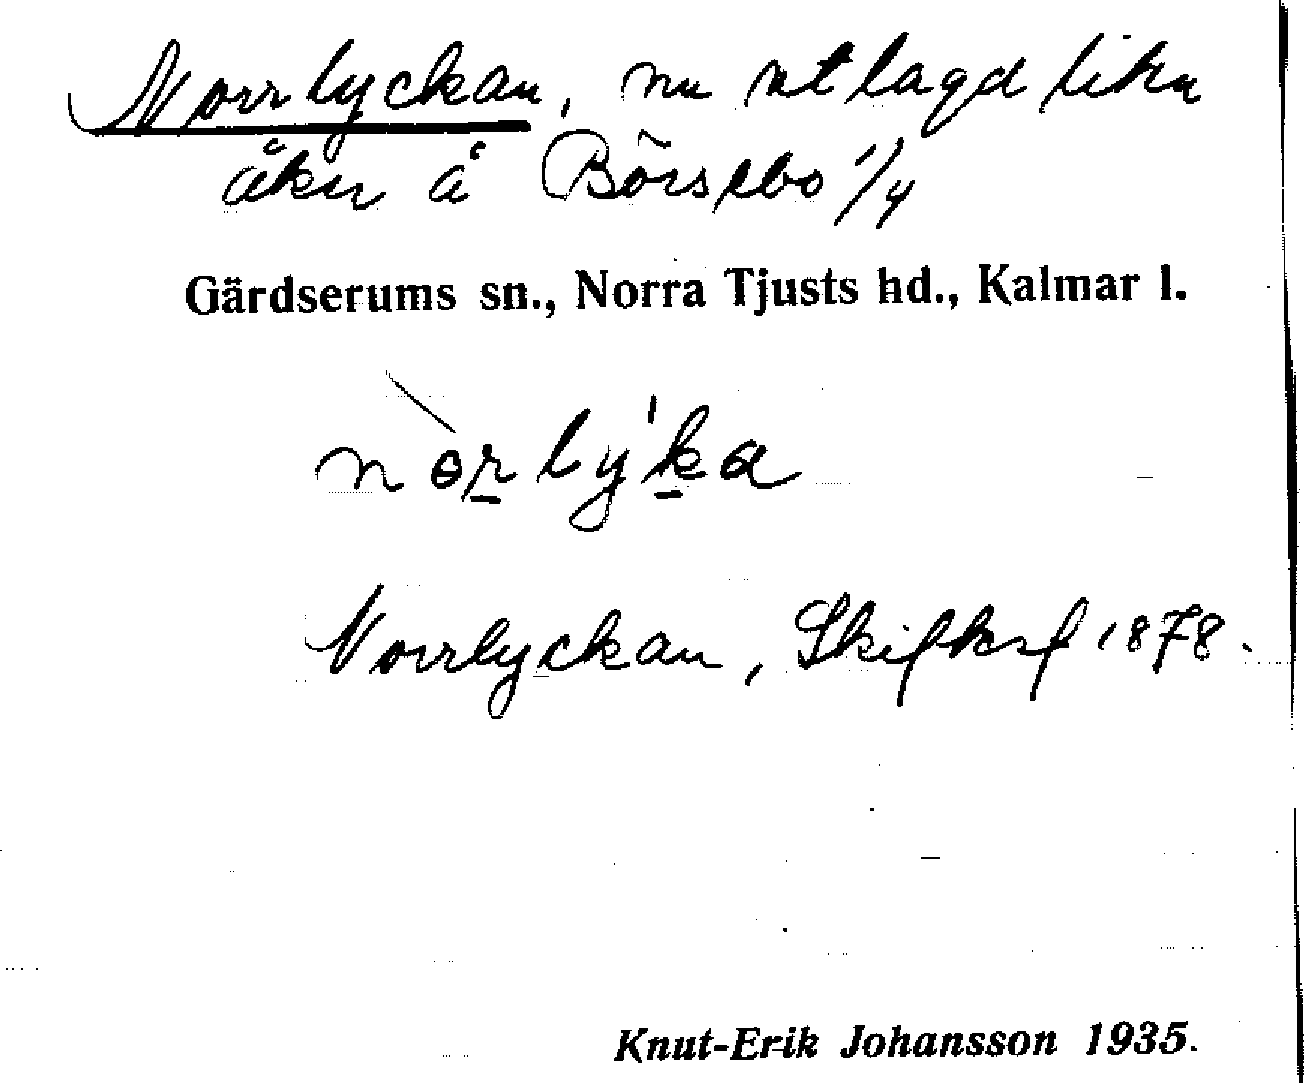 Norrlyckan, nu utlagd liten
åker å Börsebo 1/4
Gärdserums sn., Norra Tjusts hd., Kalmar l.
nòrly'ka
Norrlyckan, Skifteskf 1878.
Knut-Erik Johansson 1935.